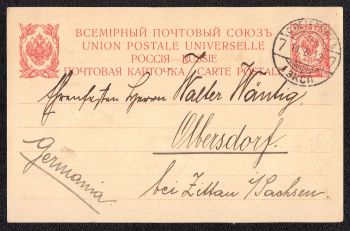 ВСЕМІРНЫЙ ПОЧТОВЫЙ СОЮЗЪ
UNION POSTALE UNIVERSELLE
РОССІЯ RUSSIE
ПОЧТОВАЯ КАРТОЧКА CARTE POSTALE
Ehrenfesten Herrn Walter Häntzig
Olbersdorf.
Germania
bei Zittau i/Sachsen.
ЭКСП.